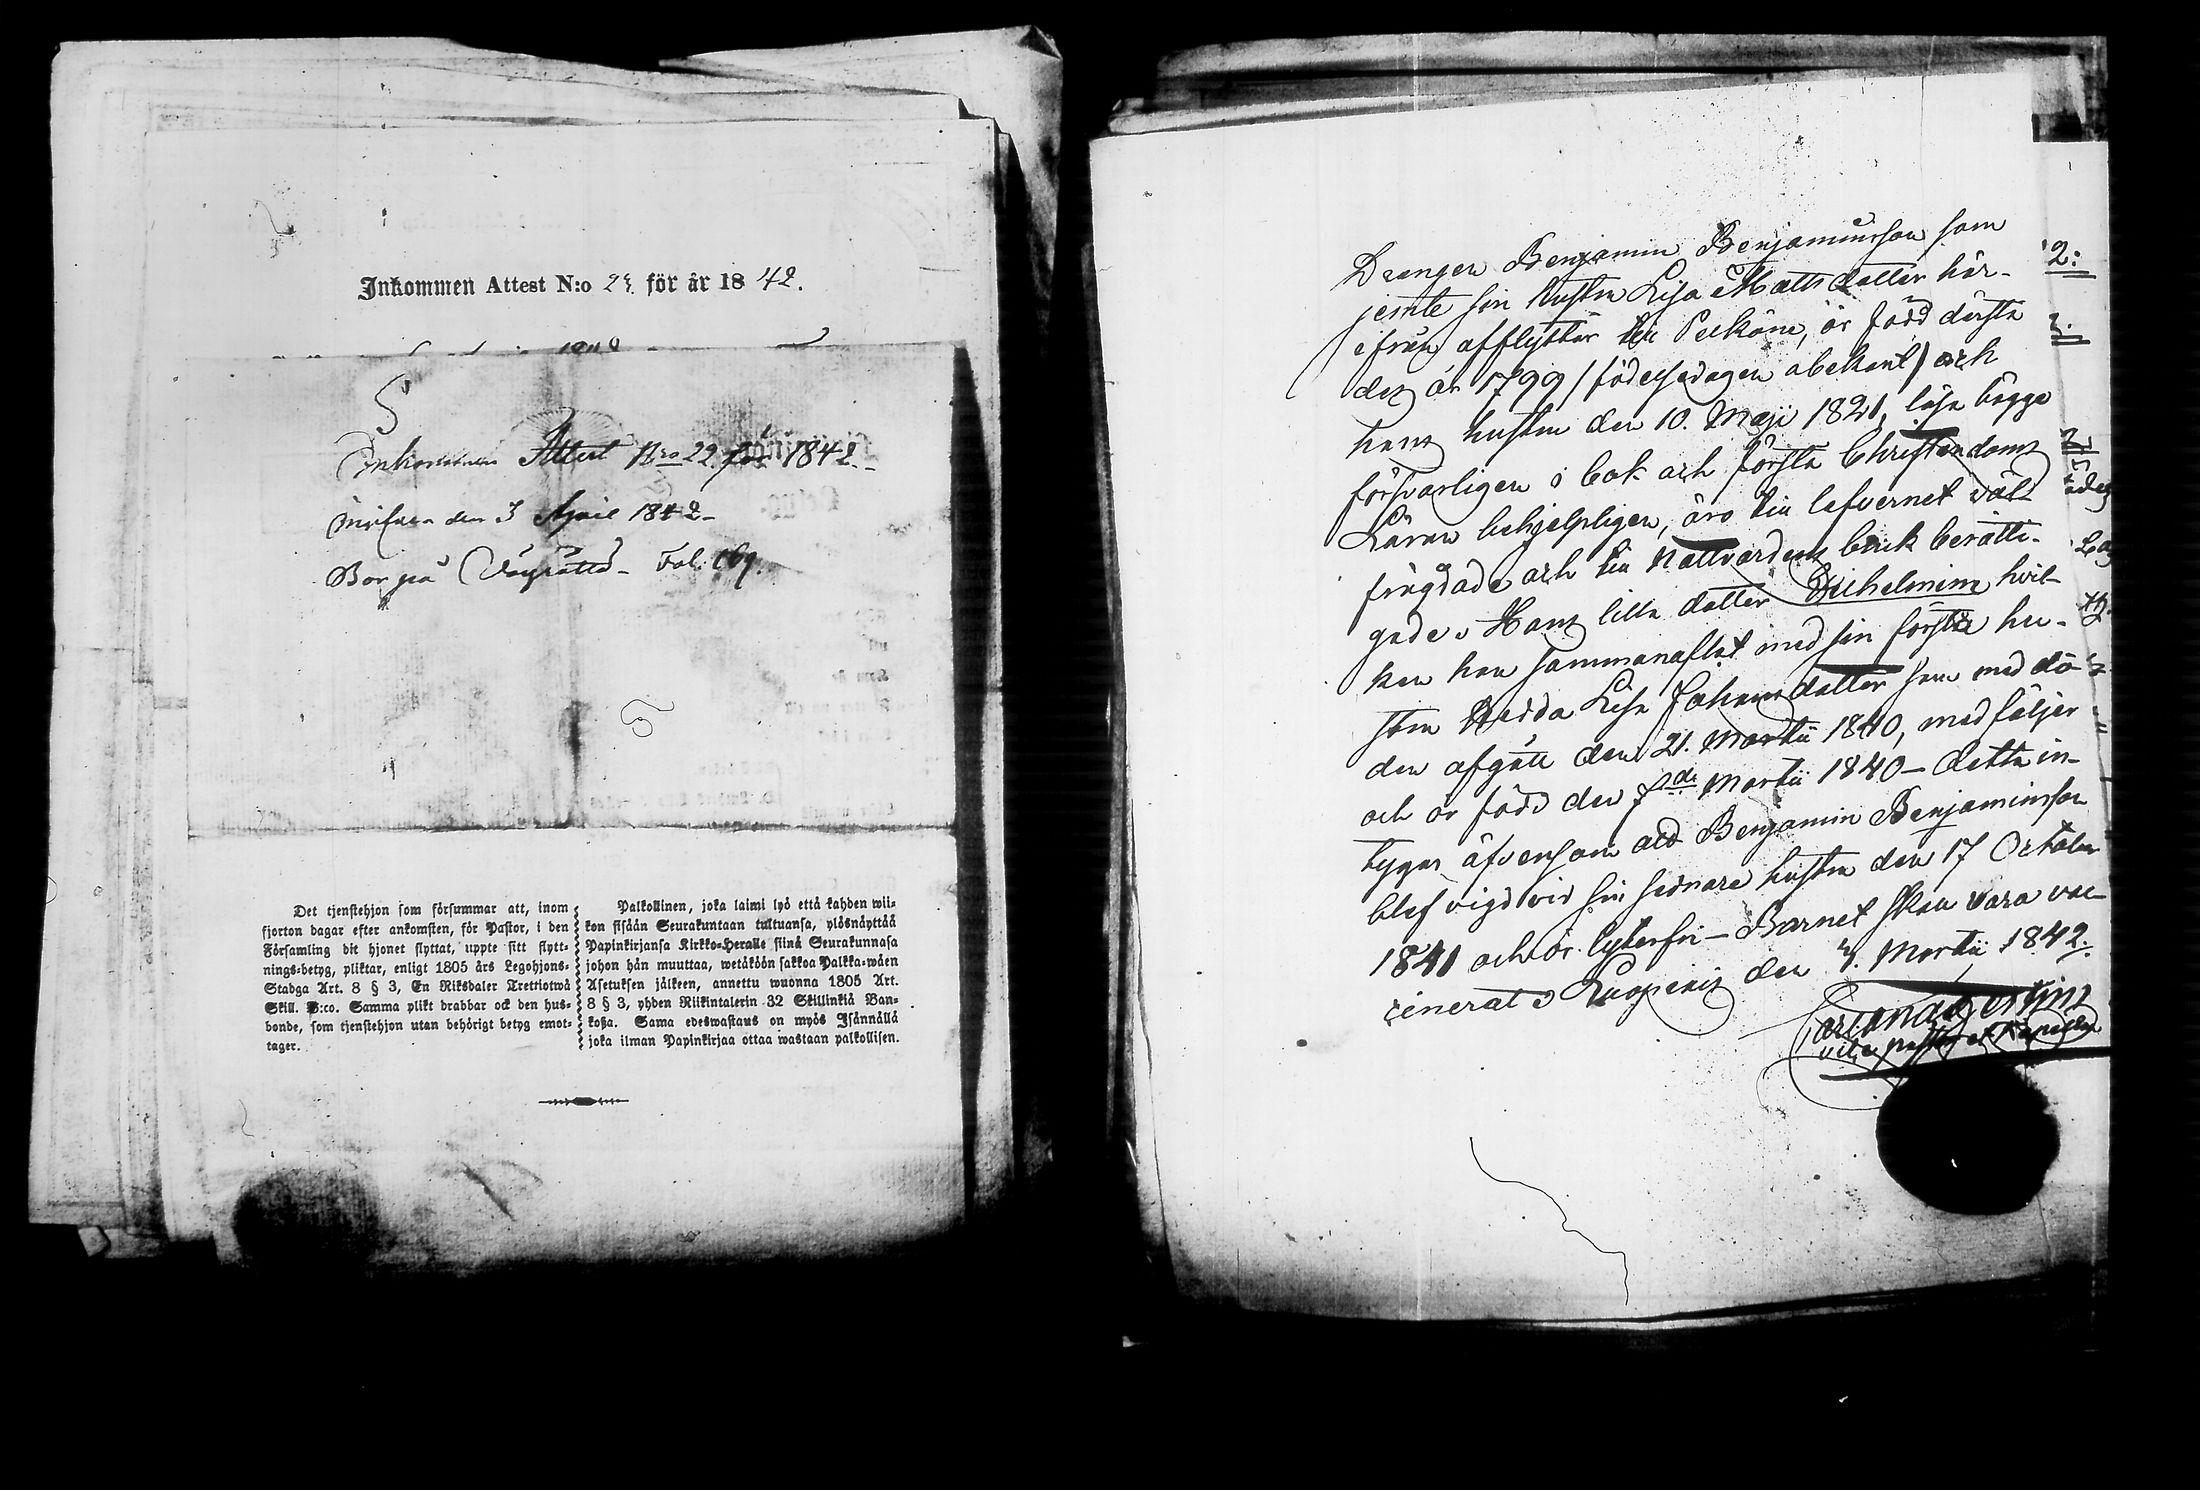 Inkommen Attest N:o 23. för år 1842.
Inkommen Attest Nro 22. för 1842.
den 3 April 1842-
Bor på Fol. 169.
Det tjenstehjon som försummar att, inom
fjorton dagar efter ankomsten, för Pastor, i den
Församling dit hjonet flyttat, uppte sitt flytt-
nings-betyg, pliktar, enligt 1805 års Legohjons-
Stadga Art. 8 § 3, En Riksdaler Tretriotwå
Skill. B:co. Samma plikt drabbar ock den hus-
bonde, som tjenstehjon utan behörigt betyg emot-
tager.
Palkollinen, joka laimi lyö että kahden wii-
kon sisään Seurakuntaan tultuansa, ylösnäyttää
Papinkirjansa Kirkko-Heralle siinä Seurakunnasa
johon hän muuttaa, wetäköön sakkoa Palkka-wäen
Asetuksen jälkeen, annettu wuonna 1805 Art.
8 § 3, yhden Riikintalerin 32 Skillinkiä Ban-
koßa. Sama edeswastaus on myös Isännällä
joka ilman Papinkirjaa ottaa wastaan palkollisen.
Drengen Benjamin Benjaminsson som
jemte sin hustru Lisa Mattsdotter här-
ifrån afflyttar till Pelkäne, är född dersta
des år 1799 (födelsedagen obekant) och
hans hustru den 10. Maji 1821, läsa bägge
försvarligen i bok och förstå Christendoms
Läran behjelpligen, äro till lefvernet väl
frägdade och till Nattvardens bruk berätti-
gade. Hans lilla dotter Wilhelmina hvil-
ken han sammanaflat med sin första hu-
stru Hedda Lisa Johansdotter som med dö-
den afgått den 21. Martii 1840, medföljer
och är född den 7de Martii 1840 - Detta in-
tygas äfvensom att Benjamin Benjaminsson
blef vigd vid sin sednare hustru den 17 October
1841 och är lyterfri - Barnet skall vara vac-
cinerat. Luopiois den 4. Martii 1842.
2:
3.